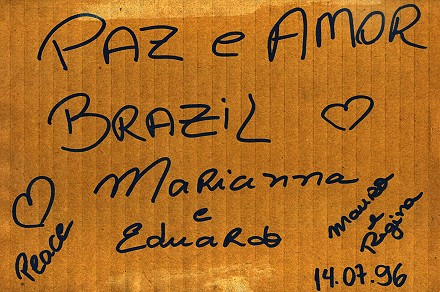 PAZ e AMOR
BRAZIL
Marianna
e
Eduardo
Peace
Mauro
e
Regina
14.07.96